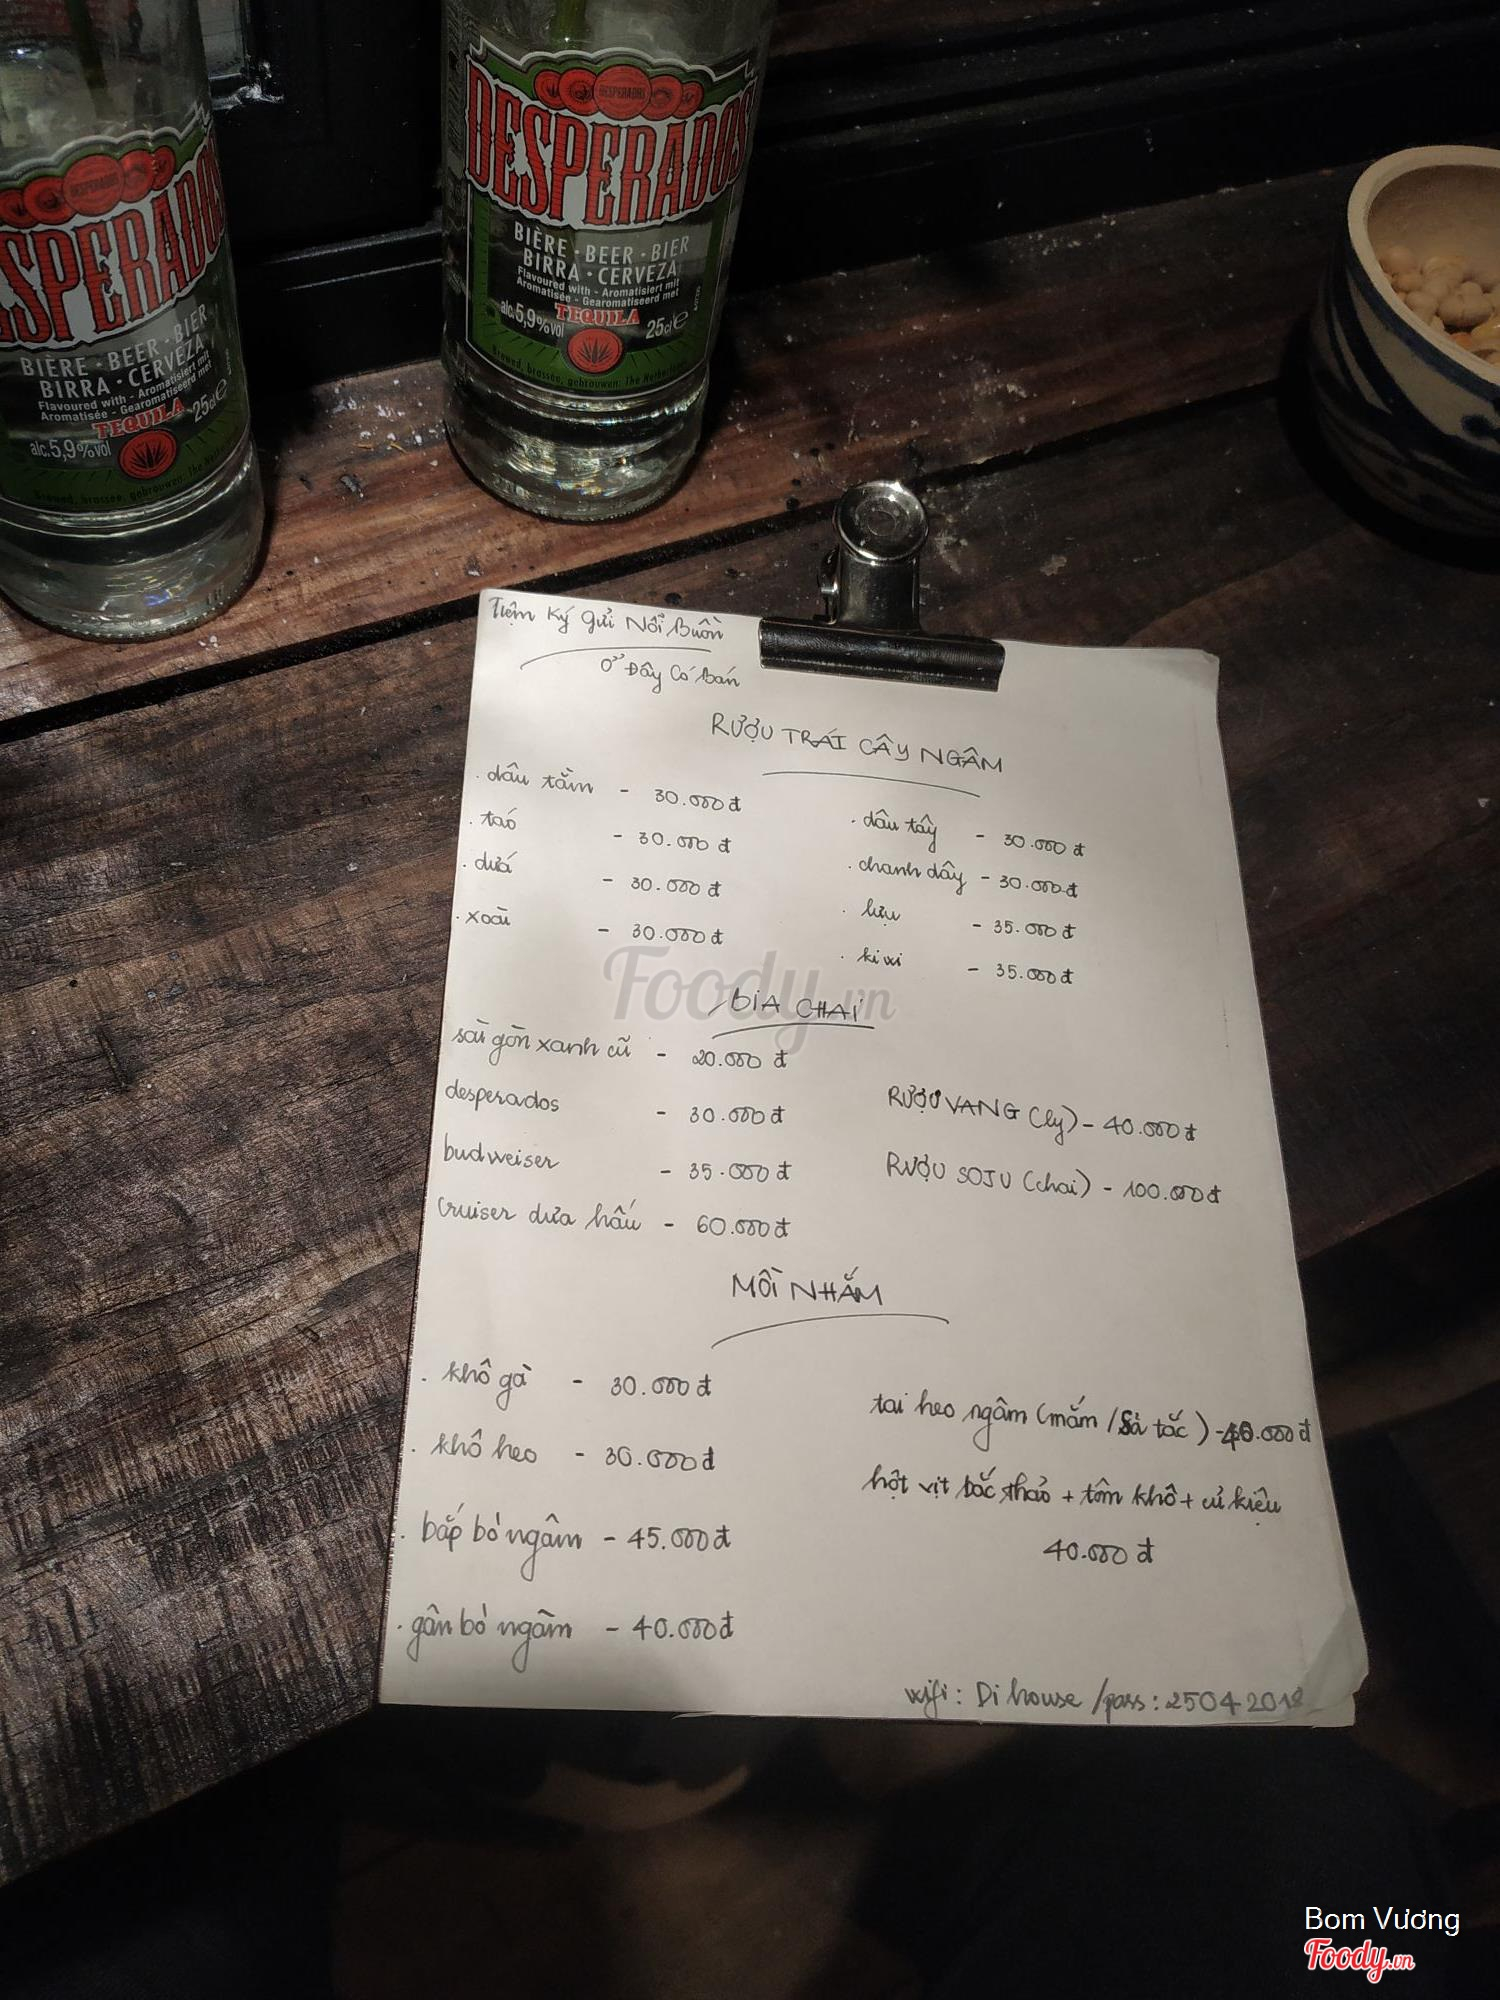 DESPERADOS
BIÈRE · BEER · BIER
BIRRA · CERVEZA
Flavoured with - Aromatisiert mit
Aromatisée - Gearomatiseerd met
TEQUILA
alc.5,9%vol
25cl e
Brewed, brassée, gebrouwen: The
DESPERADOS
BIÈRE · BEER · BIER
BIRRA · CERVEZA
Flavoured with - Aromatisiert mit
Aromatisée - Gearomatiseerd met
TEQUILA
alc.5,9%vol
25cl e
Brewed, brassée, gebrouwen: The Netherlands
Tiệm Ký Gửi Nỗi Buồn
Ở Đây Có Bán
RƯỢU TRÁI CÂY NGÂM
. dâu tằm - 30.000 đ
. táo - 30.000 đ
. dứa - 30.000 đ
. xoài - 30.000 đ
. dâu tây - 30.000 đ
. chanh dây - 30.000 đ
. lựu - 35.000 đ
. kiwi - 35.000 đ
BIA CHAI
sài gòn xanh cũ - 20.000 đ
desperados - 30.000 đ
budweiser - 35.000 đ
cruiser dưa hấu - 60.000 đ
RƯỢU VANG (ly) - 40.000 đ
RƯỢU SOJU (chai) - 100.000 đ
MỒI NHẮM
. khô gà - 30.000 đ
. khô heo - 30.000 đ
. bắp bò ngâm - 45.000 đ
. gân bò ngâm - 40.000 đ
tai heo ngâm (mắm / sả tắc) - 40.000 đ
hột vịt bắc thảo + tôm khô + củ kiệu
40.000 đ
wifi : Di house / pass : 25042018
Foody.vn
Bom Vương
Foody.vn